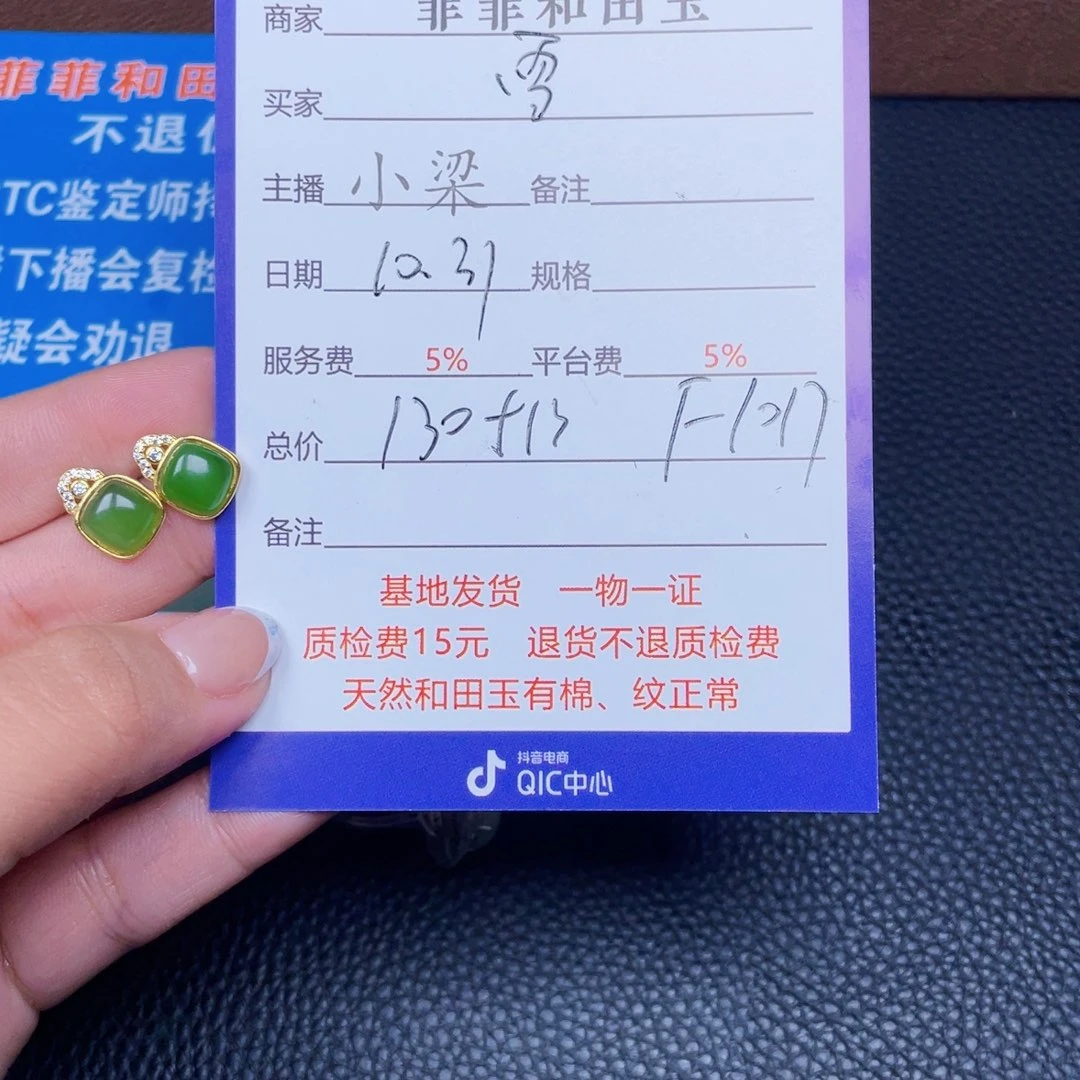 菲菲和田
不退
TC鉴定师持
下播会复检
疑会劝退
商家 菲菲和田玉
买家 雪
主播 小梁 备注
日期 10.31 规格
服务费 5% 平台费 5%
总价 130+13 F-1017
备注
基地发货 一物一证
质检费15元 退货不退质检费
天然和田玉有棉、纹正常
抖音电商
QIC中心